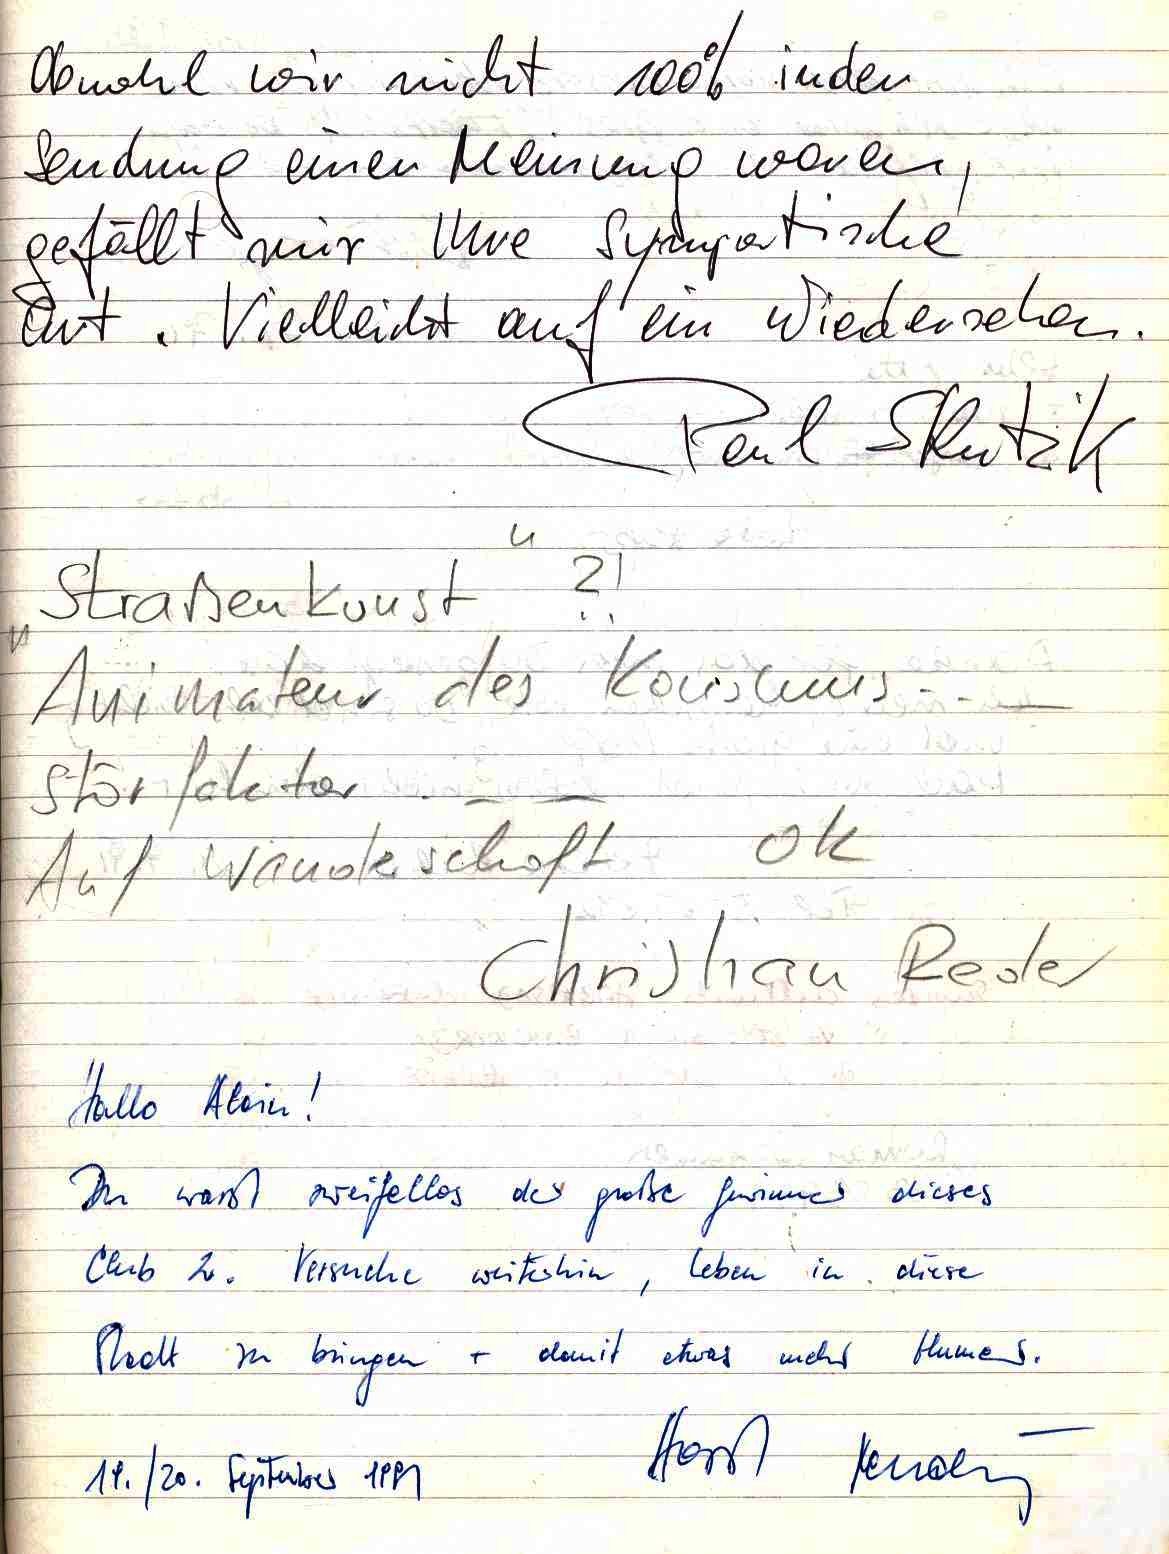 Obwohl wir nicht 100% in der
Sendung einer Meinung waren,
gefällt mir Ihre Sympatische
Art. Vielleicht auf ein Wiedersehen.
Paul Skutzik
„Straßenkunst“ ?!
Animateur des Konsums ...
Störfaktor . — —
Auf Wanderschaft OK
Christian Reder
Hallo Alain!
Du warst zweifellos der große Gewinner dieses
Club 2. Versuche weiterhin, Leben in diese
Stadt zu bringen + damit etwas mehr Humor.
19./20. September 1991
Horst